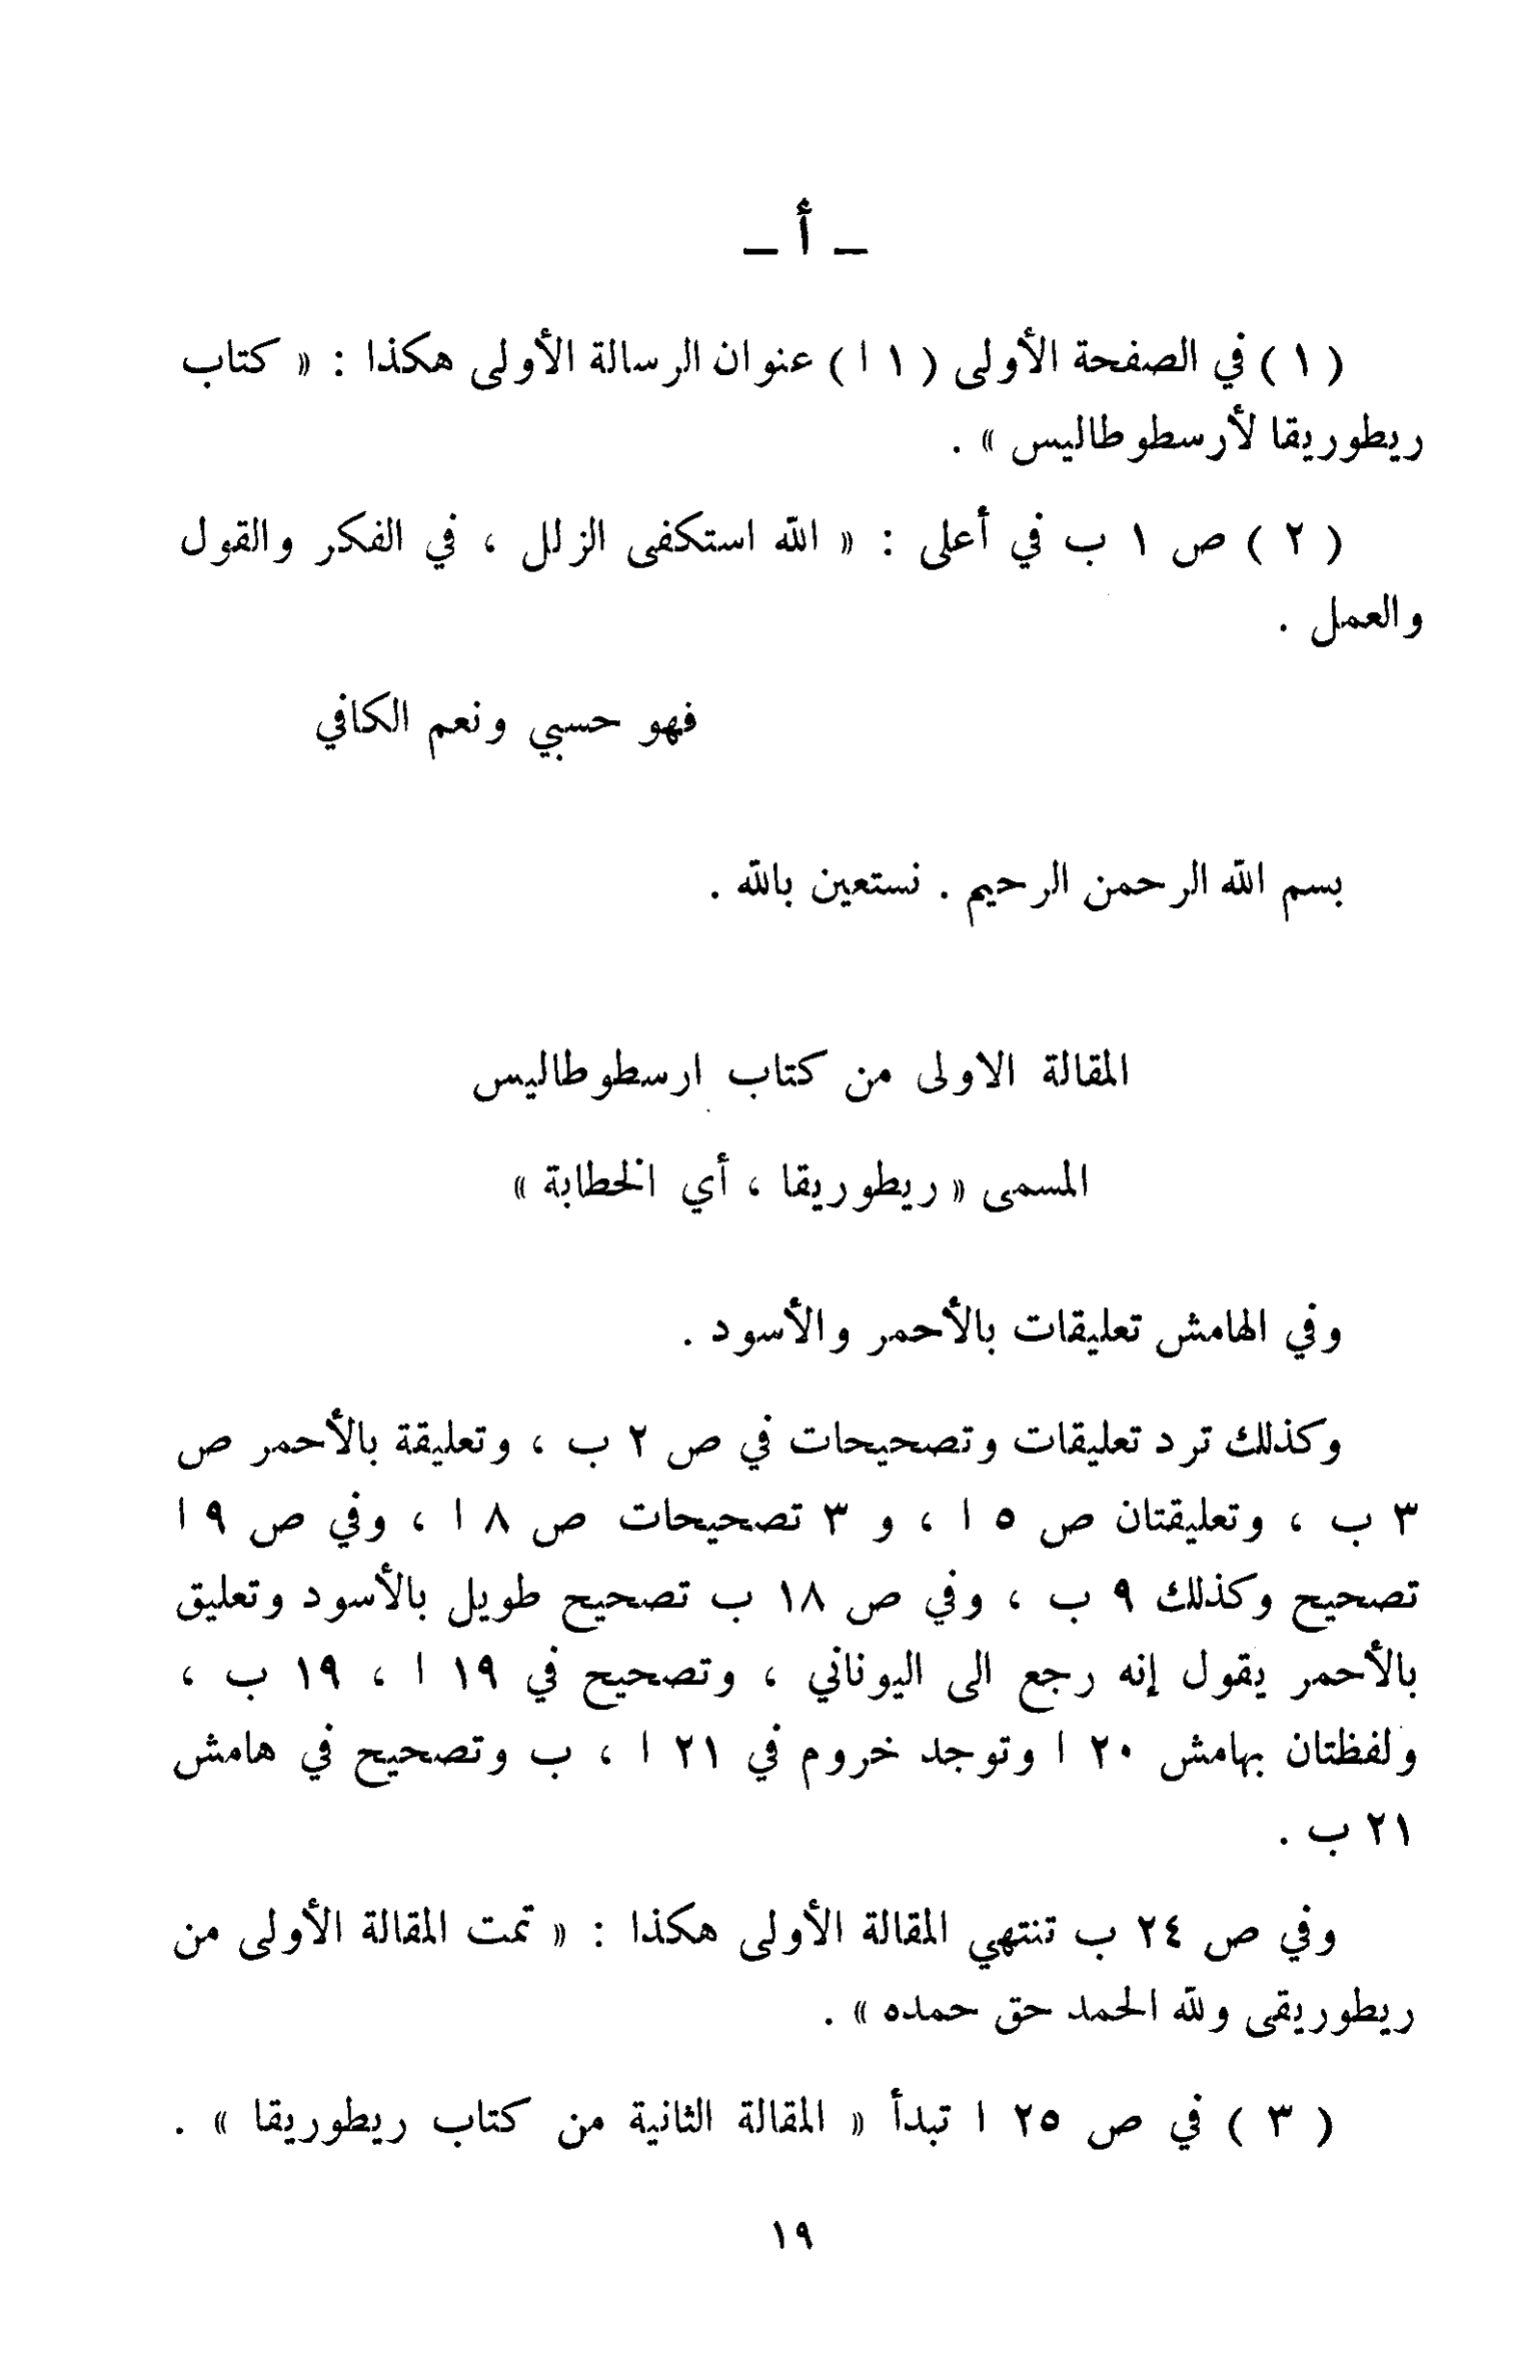 ـ أ ـ
( ١ ) في الصفحة الأولى ( ١ ا ) عنوان الرسالة الأولى هكذا : « كتاب
ريطوريقا لأرسطوطاليس » .
( ٢ ) ص ١ ب في أعلى : « الله استكفى الزلل ، في الفكر والقول
والعمل .
فهو حسبي ونعم الكافي
بسم الله الرحمن الرحيم . نستعين بالله .
المقالة الاولى من كتاب ارسطوطاليس
المسمى « ريطوريقا ، أي الخطابة »
وفي الهامش تعليقات بالأحمر والأسود .
وكذلك ترد تعليقات وتصحيحات في ص ٢ ب ، وتعليقة بالأحمر ص
٣ ب ، وتعليقتان ص ٥ ا ، و ٣ تصحيحات ص ٨ ا ، وفي ص ٩ ا
تصحيح وكذلك ٩ ب ، وفي ص ١٨ ب تصحيح طويل بالأسود وتعليق
بالأحمر يقول إنه رجع الى اليوناني ، وتصحيح في ١٩ ا ، ١٩ ب ،
ولفظتان بهامش ٢٠ ا وتوجد خروم في ٢١ ا ، ب وتصحيح في هامش
٢١ ب .
وفي ص ٢٤ ب تنتهي المقالة الأولى هكذا : « تمت المقالة الأولى من
ريطوريقى ولله الحمد حق حمده » .
( ٣ ) في ص ٢٥ ا تبدأ « المقالة الثانية من كتاب ريطوريقا » .
١٩